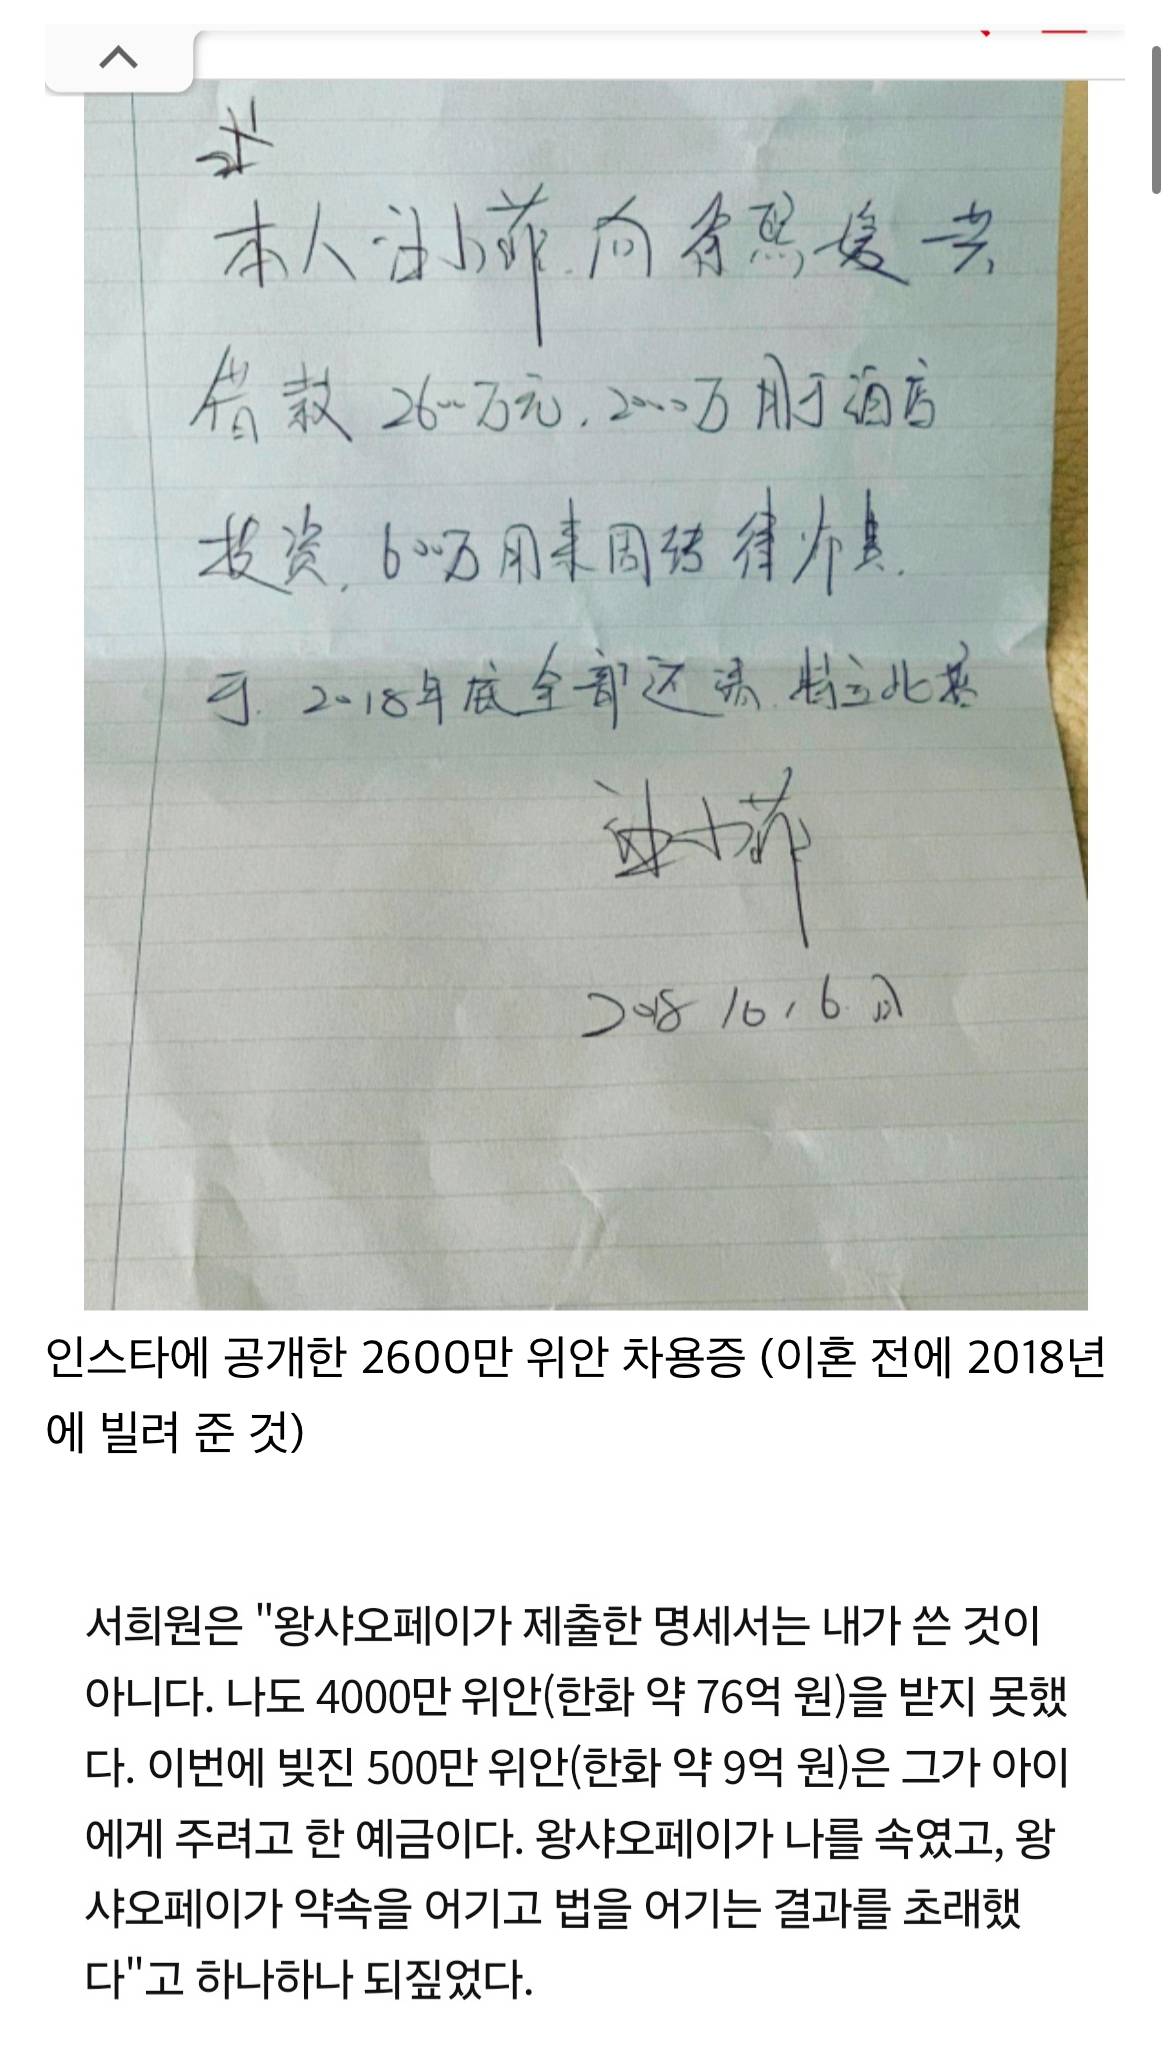 本人汪小菲向徐熙媛共
借款2600万元.2000万用于酒店
投资.600万用来周转律师费.
于.2018年底全部还清.特立此据
汪小菲
2018 10,6.
인스타에 공개한 2600만 위안 차용증 (이혼 전에 2018년
에 빌려 준 것)
서희원은 "왕샤오페이가 제출한 명세서는 내가 쓴 것이
아니다. 나도 4000만 위안(한화 약 76억 원)을 받지 못했
다. 이번에 빚진 500만 위안(한화 약 9억 원)은 그가 아이
에게 주려고 한 예금이다. 왕샤오페이가 나를 속였고, 왕
샤오페이가 약속을 어기고 법을 어기는 결과를 초래했
다"고 하나하나 되짚었다.